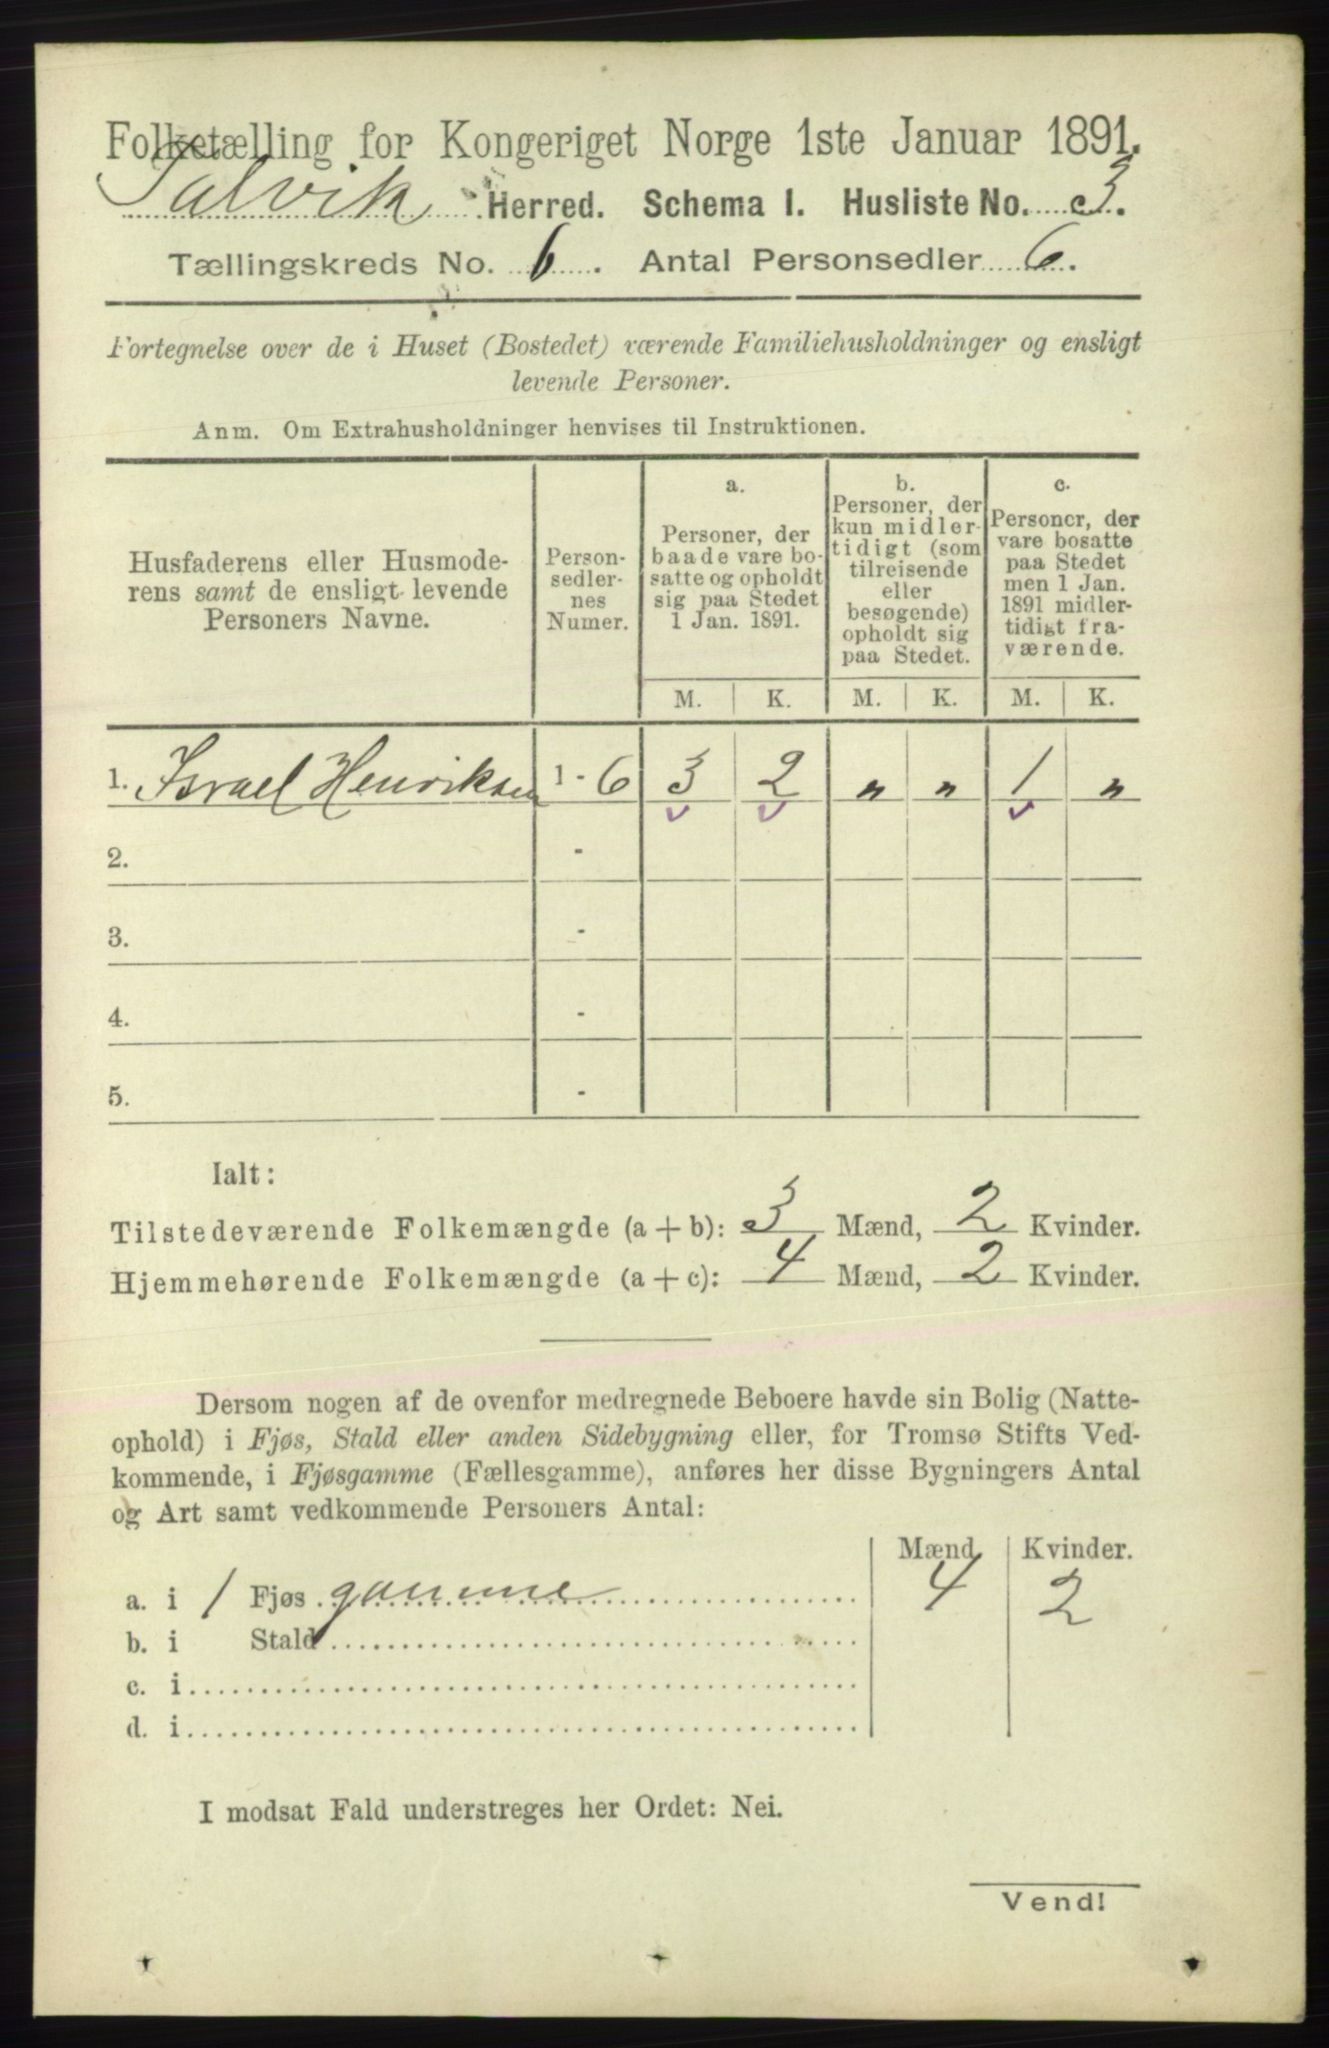 Folketælling for Kongeriget Norge 1ste Januar 1891.
Talvik Herred. Schema I. Husliste No. 3.
Tællingskreds No. 6. Antal Personsedler 6.
Fortegnelse over de i Huset (Bostedet) værende Familiehusholdninger og ensligt
levende Personer.
Anm. Om Extrahusholdninger henvises til Instruktionen.
Husfaderens eller Husmode-
rens samt de ensligt levende
Personers Navne.
Person-
sedler-
nes
Numer.
a.
Personer, der
baade vare bo-
satte og opholdt
sig paa Stedet
1 Jan. 1891.
b.
Personer, der
kun midler-
tidigt (som
tilreisende
eller
besøgende)
opholdt sig
paa Stedet.
c.
Personer, der
vare bosatte
paa Stedet
men 1 Jan.
1891 midler-
tidigt fra-
værende.
M. K. M. K. M. K.
1. Israel Henriksen 1 - 6 3 2 " " 1 "
2. -
3. -
4. -
5. -
Ialt:
Tilstedeværende Folkemængde (a + b): 3 Mænd, 2 Kvinder.
Hjemmehørende Folkemængde (a + c): 4 Mænd, 2 Kvinder.
Dersom nogen af de ovenfor medregnede Beboere havde sin Bolig (Natte-
ophold) i Fjøs, Stald eller anden Sidebygning eller, for Tromsø Stifts Ved-
kommende, i Fjøsgamme (Fællesgamme), anføres her disse Bygningers Antal
og Art samt vedkommende Personers Antal:
Mænd Kvinder.
a. i 1 Fjøs gamme 4 2
b. i Stald
c. i
d. i
I modsat Fald understreges her Ordet: Nei.
Vend!